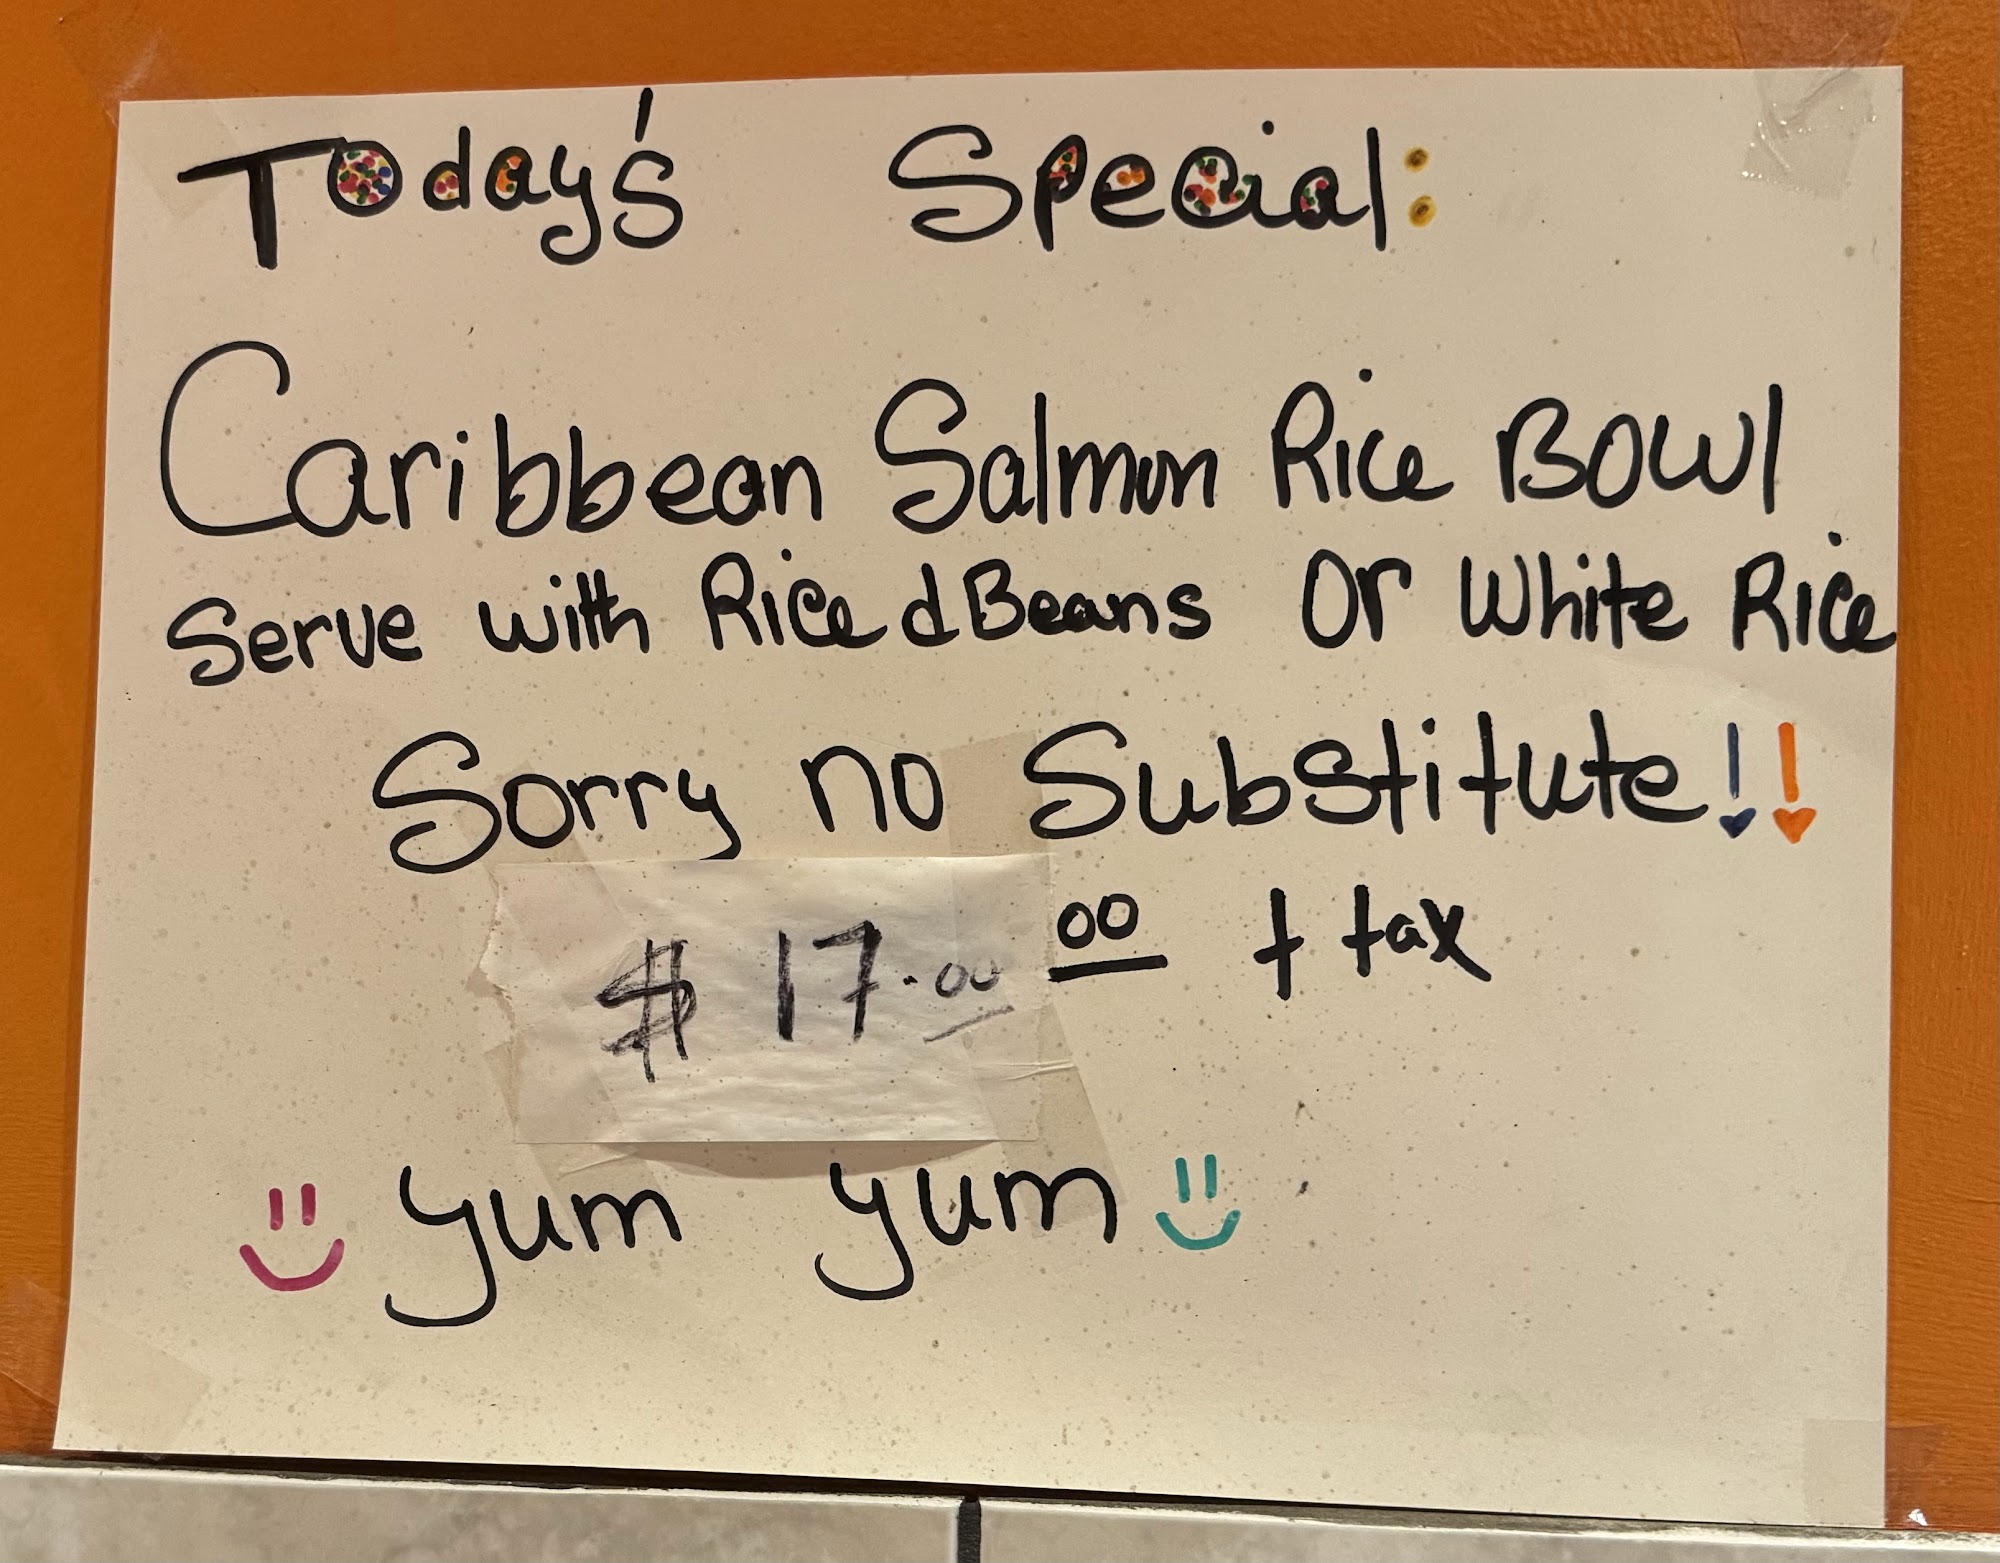 Today's Special:
Caribbean Salmon Rice Bowl
Serve with Rice & Beans Or White Rice
Sorry no Substitute!!
$17.00 00 + tax
Yum Yum